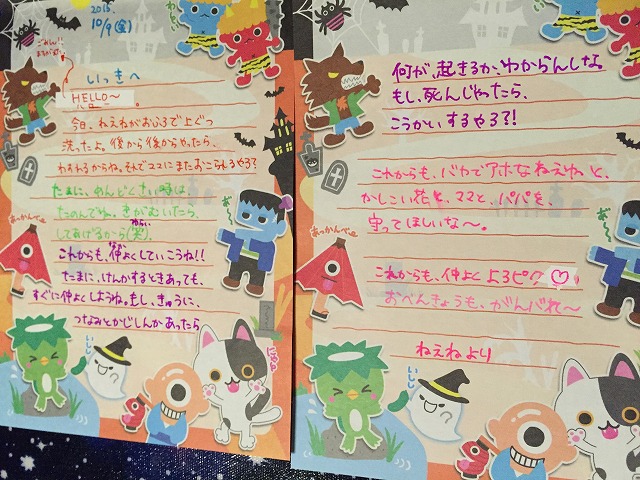 2015.
10/9(金)
いつきへ
HELLO〜
今日、ねえねがおふろで上ぐつ
洗ったよ。後から後からやったら、
わすれるからね。それでママにまたおこられるやろ?
たまに、めんどくさい時は
たのんでね。きがむいたら、
してあげるから(笑)
これからも、仲よくしていこうね!!
たまに、けんかするときあっても、
すぐに仲よくしようね。もし、きゅうに、
つなみとかじしんがあったら
何が、起きるか、わからんしな。
もし、死んじゃったら、
こうかいするやろ?!
これからも、バカでアホなねえねと、
かしこい花と、ママと、パパを、
守ってほしいな〜。
これからも、仲よくよろピク♡。
おべんきょうも、がんばれ〜
ねえねより
あっかんべー
あっかんべー
いしし
いしし